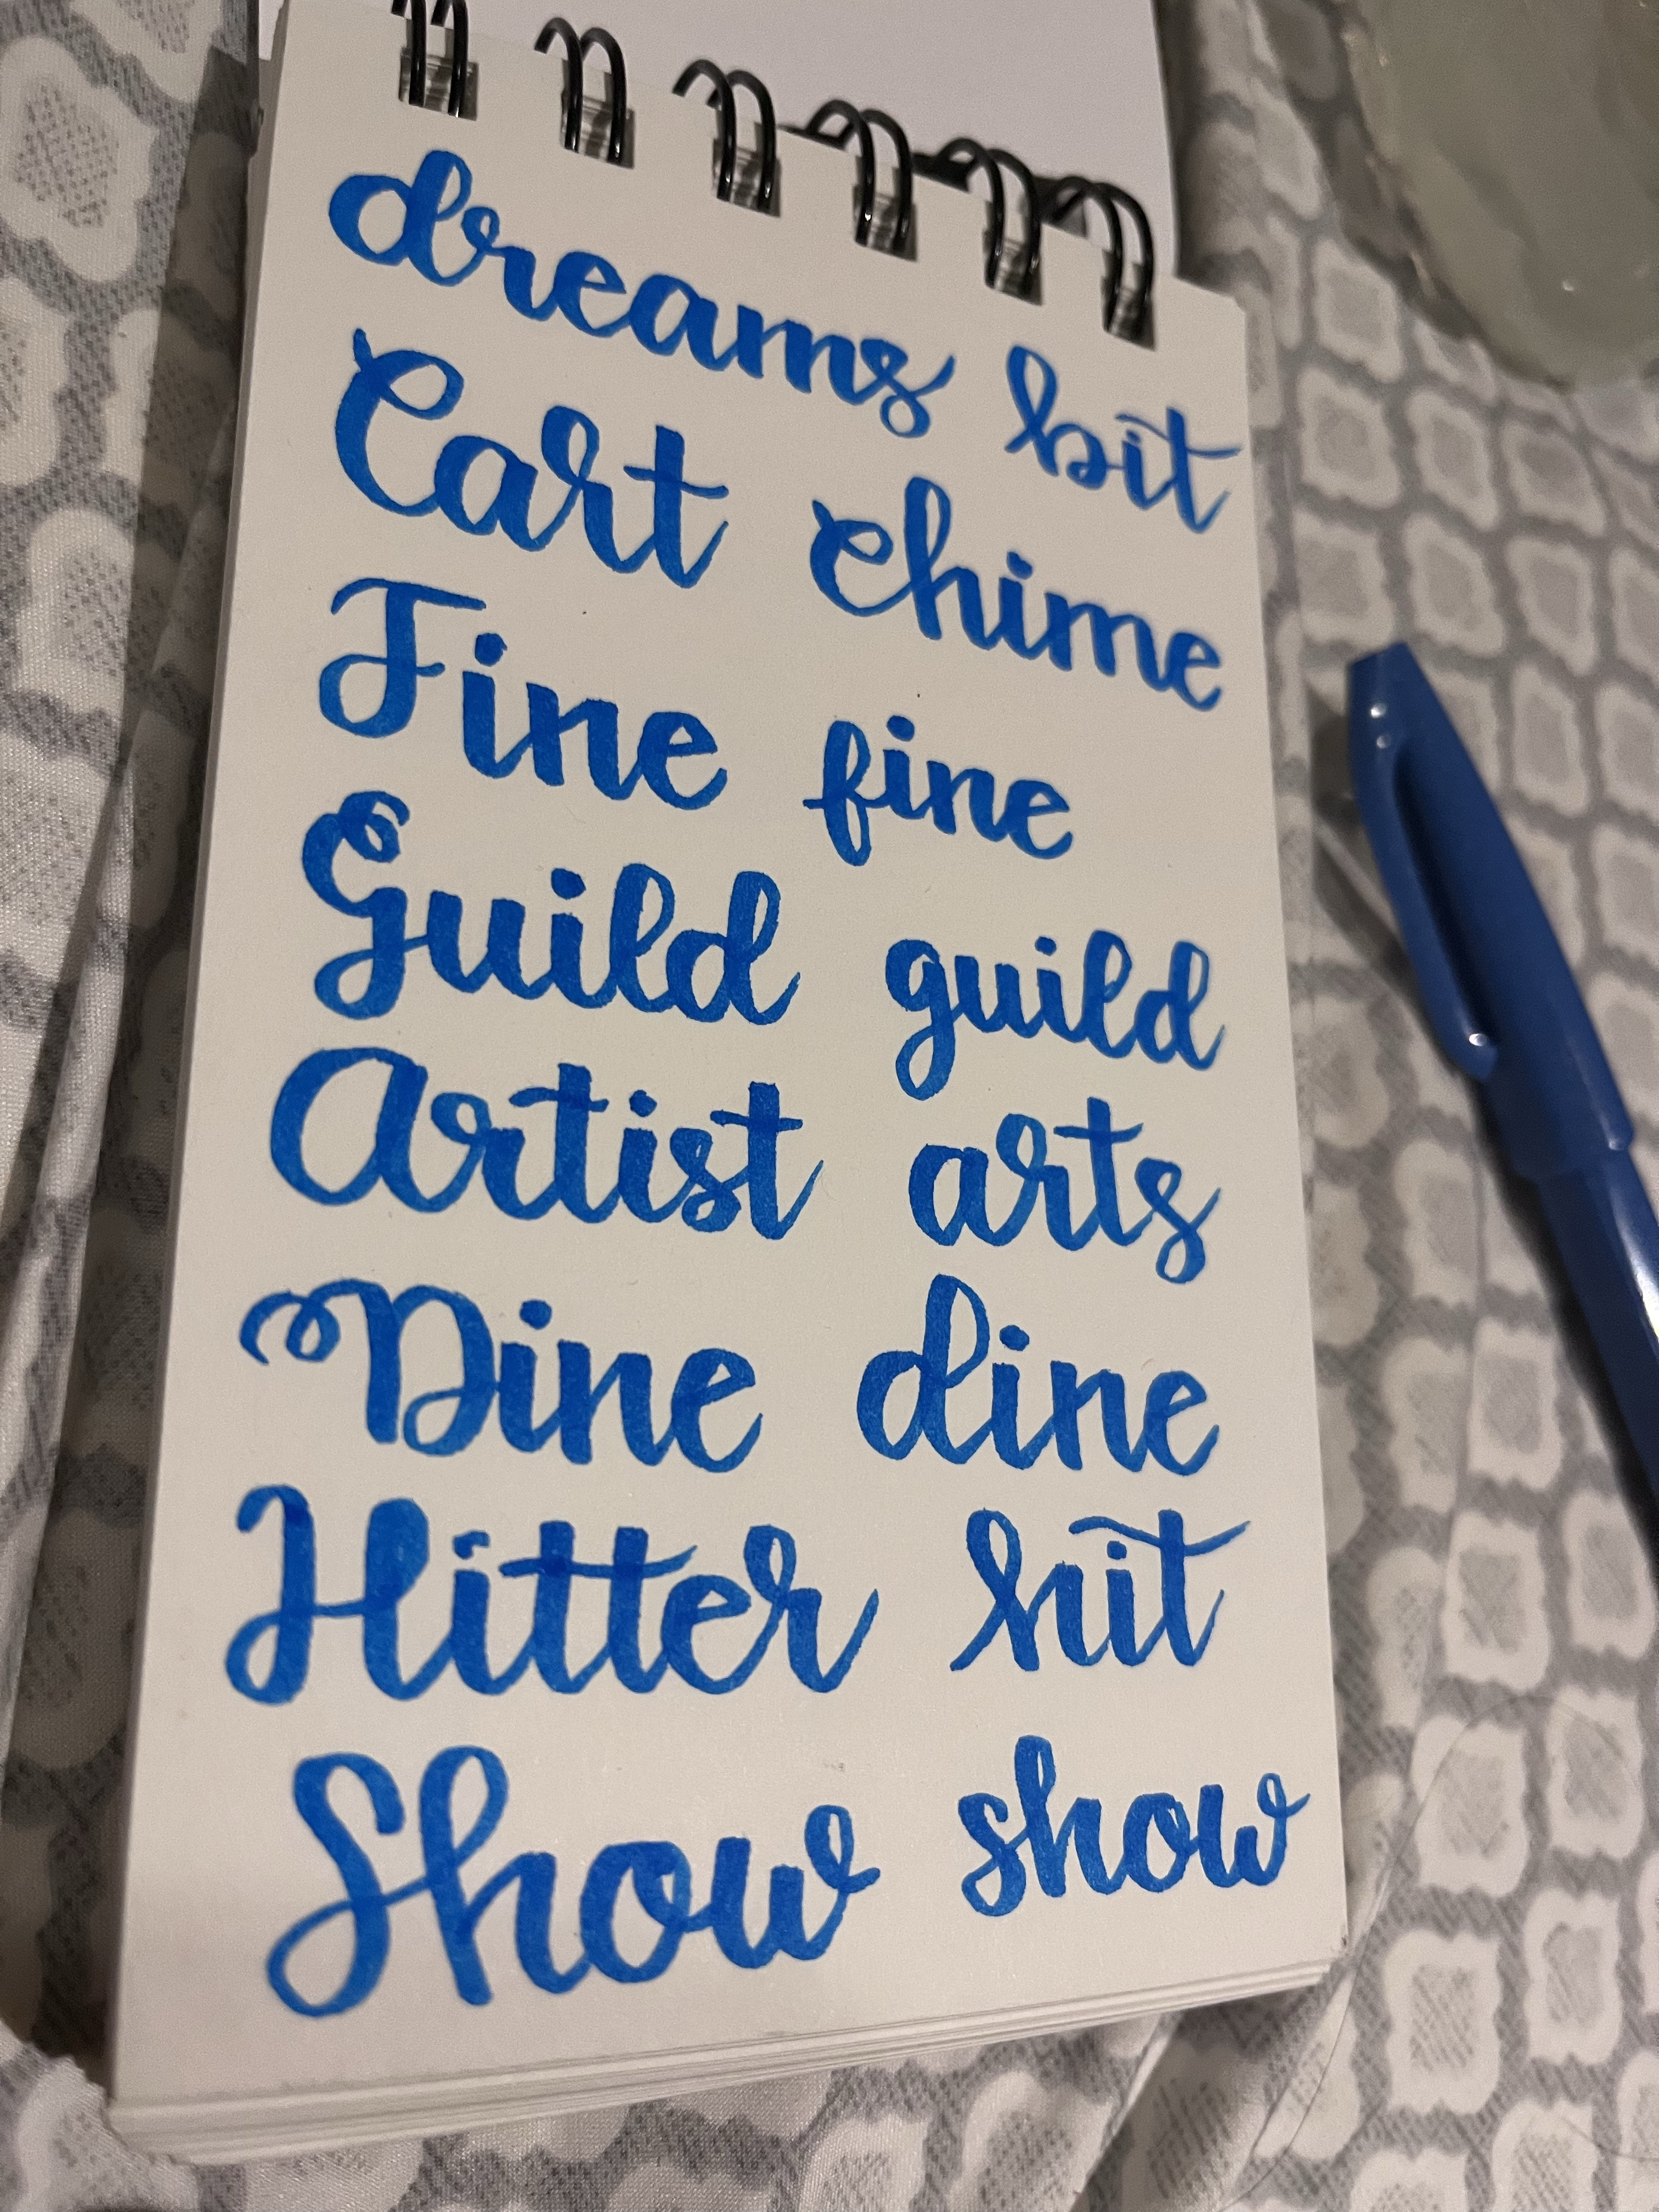 dreams bit
Cart chime
Fine fine
Guild guild
Artist arts
Dine dine
Hitter hit
Show show